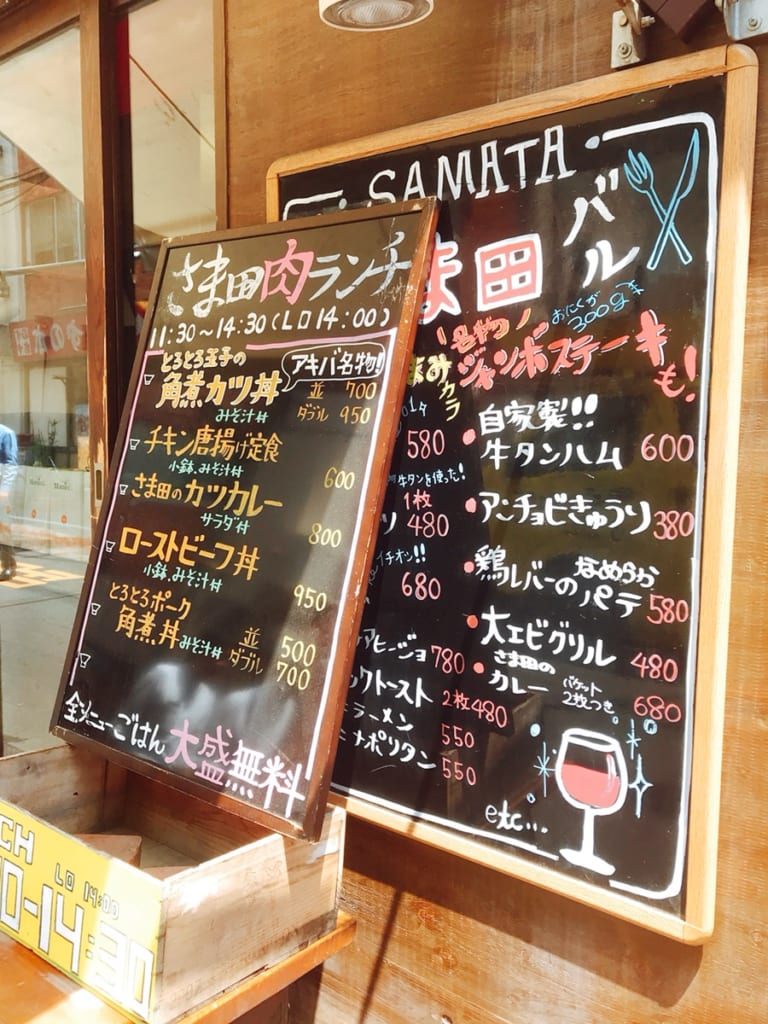 さま田肉ランチ
11:30～14:30(LO14:00)
とろとろ玉子の
角煮カツ丼
アキバ名物!
みそ汁付
並 700
ダブル 950
チキン唐揚げ定食
小鉢、みそ汁付
600
さま田のカツカレー
サラダ付
800
ローストビーフ丼
小鉢、みそ汁付
950
とろとろポーク
角煮丼 みそ汁付
並 500
ダブル 700
全メニューごはん大盛無料
SAMATA
ま田
バル
名物
おにくが
300g
ジャンボステーキも!
カラ
580
牛タンを使った!
1枚
480
イチオシ!!
680
アヒージョ 780
ックトースト 2枚480
ラーメン 550
ナポリタン 550
自家製!!
牛タンハム 600
アンチョビきゅうり 380
鶏レバーの
なめらか
パテ 580
大エビグリル 480
さま田の
カレー
バケット
2枚つき
680
etc...
CH
LO 14:00
0-14:30